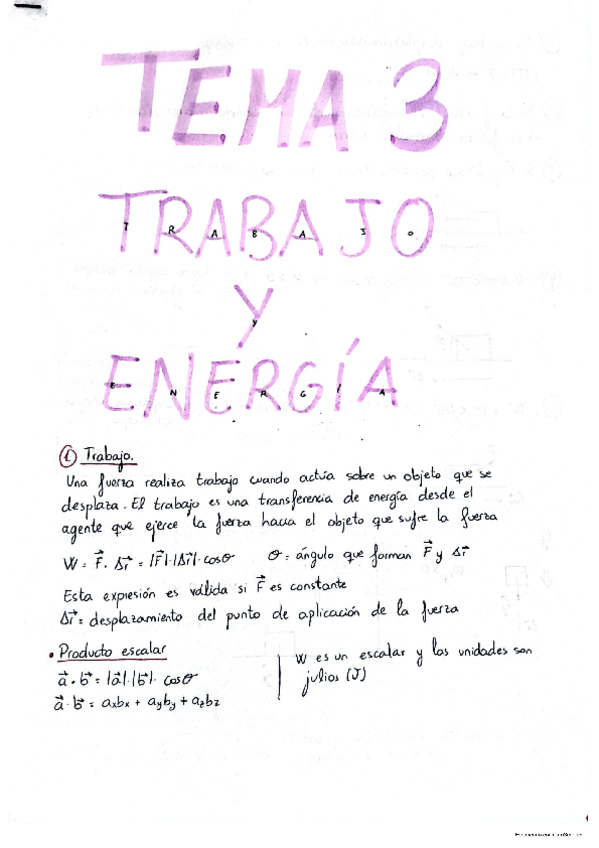 TEMA 3
TRABAJO
Y
ENERGÍA
① Trabajo.
Una fuerza realiza trabajo cuando actúa sobre un objeto que se
desplaza. El trabajo es una transferencia de energía desde el
agente que ejerce la fuerza hacia el objeto que sufre la fuerza
W = F⃗ · Δr⃗ = |F⃗|·|Δr⃗|· cosθ θ = ángulo que forman F⃗ y Δr⃗
Esta expresión es válida si F⃗ es constante
Δr⃗ = desplazamiento del punto de aplicación de la fuerza
• Producto escalar
a⃗ · b⃗ = |a⃗|·|b⃗|· cosθ
a⃗ · b⃗ = axbx + ayby + azbz
W es un escalar y las unidades son
julios (J)